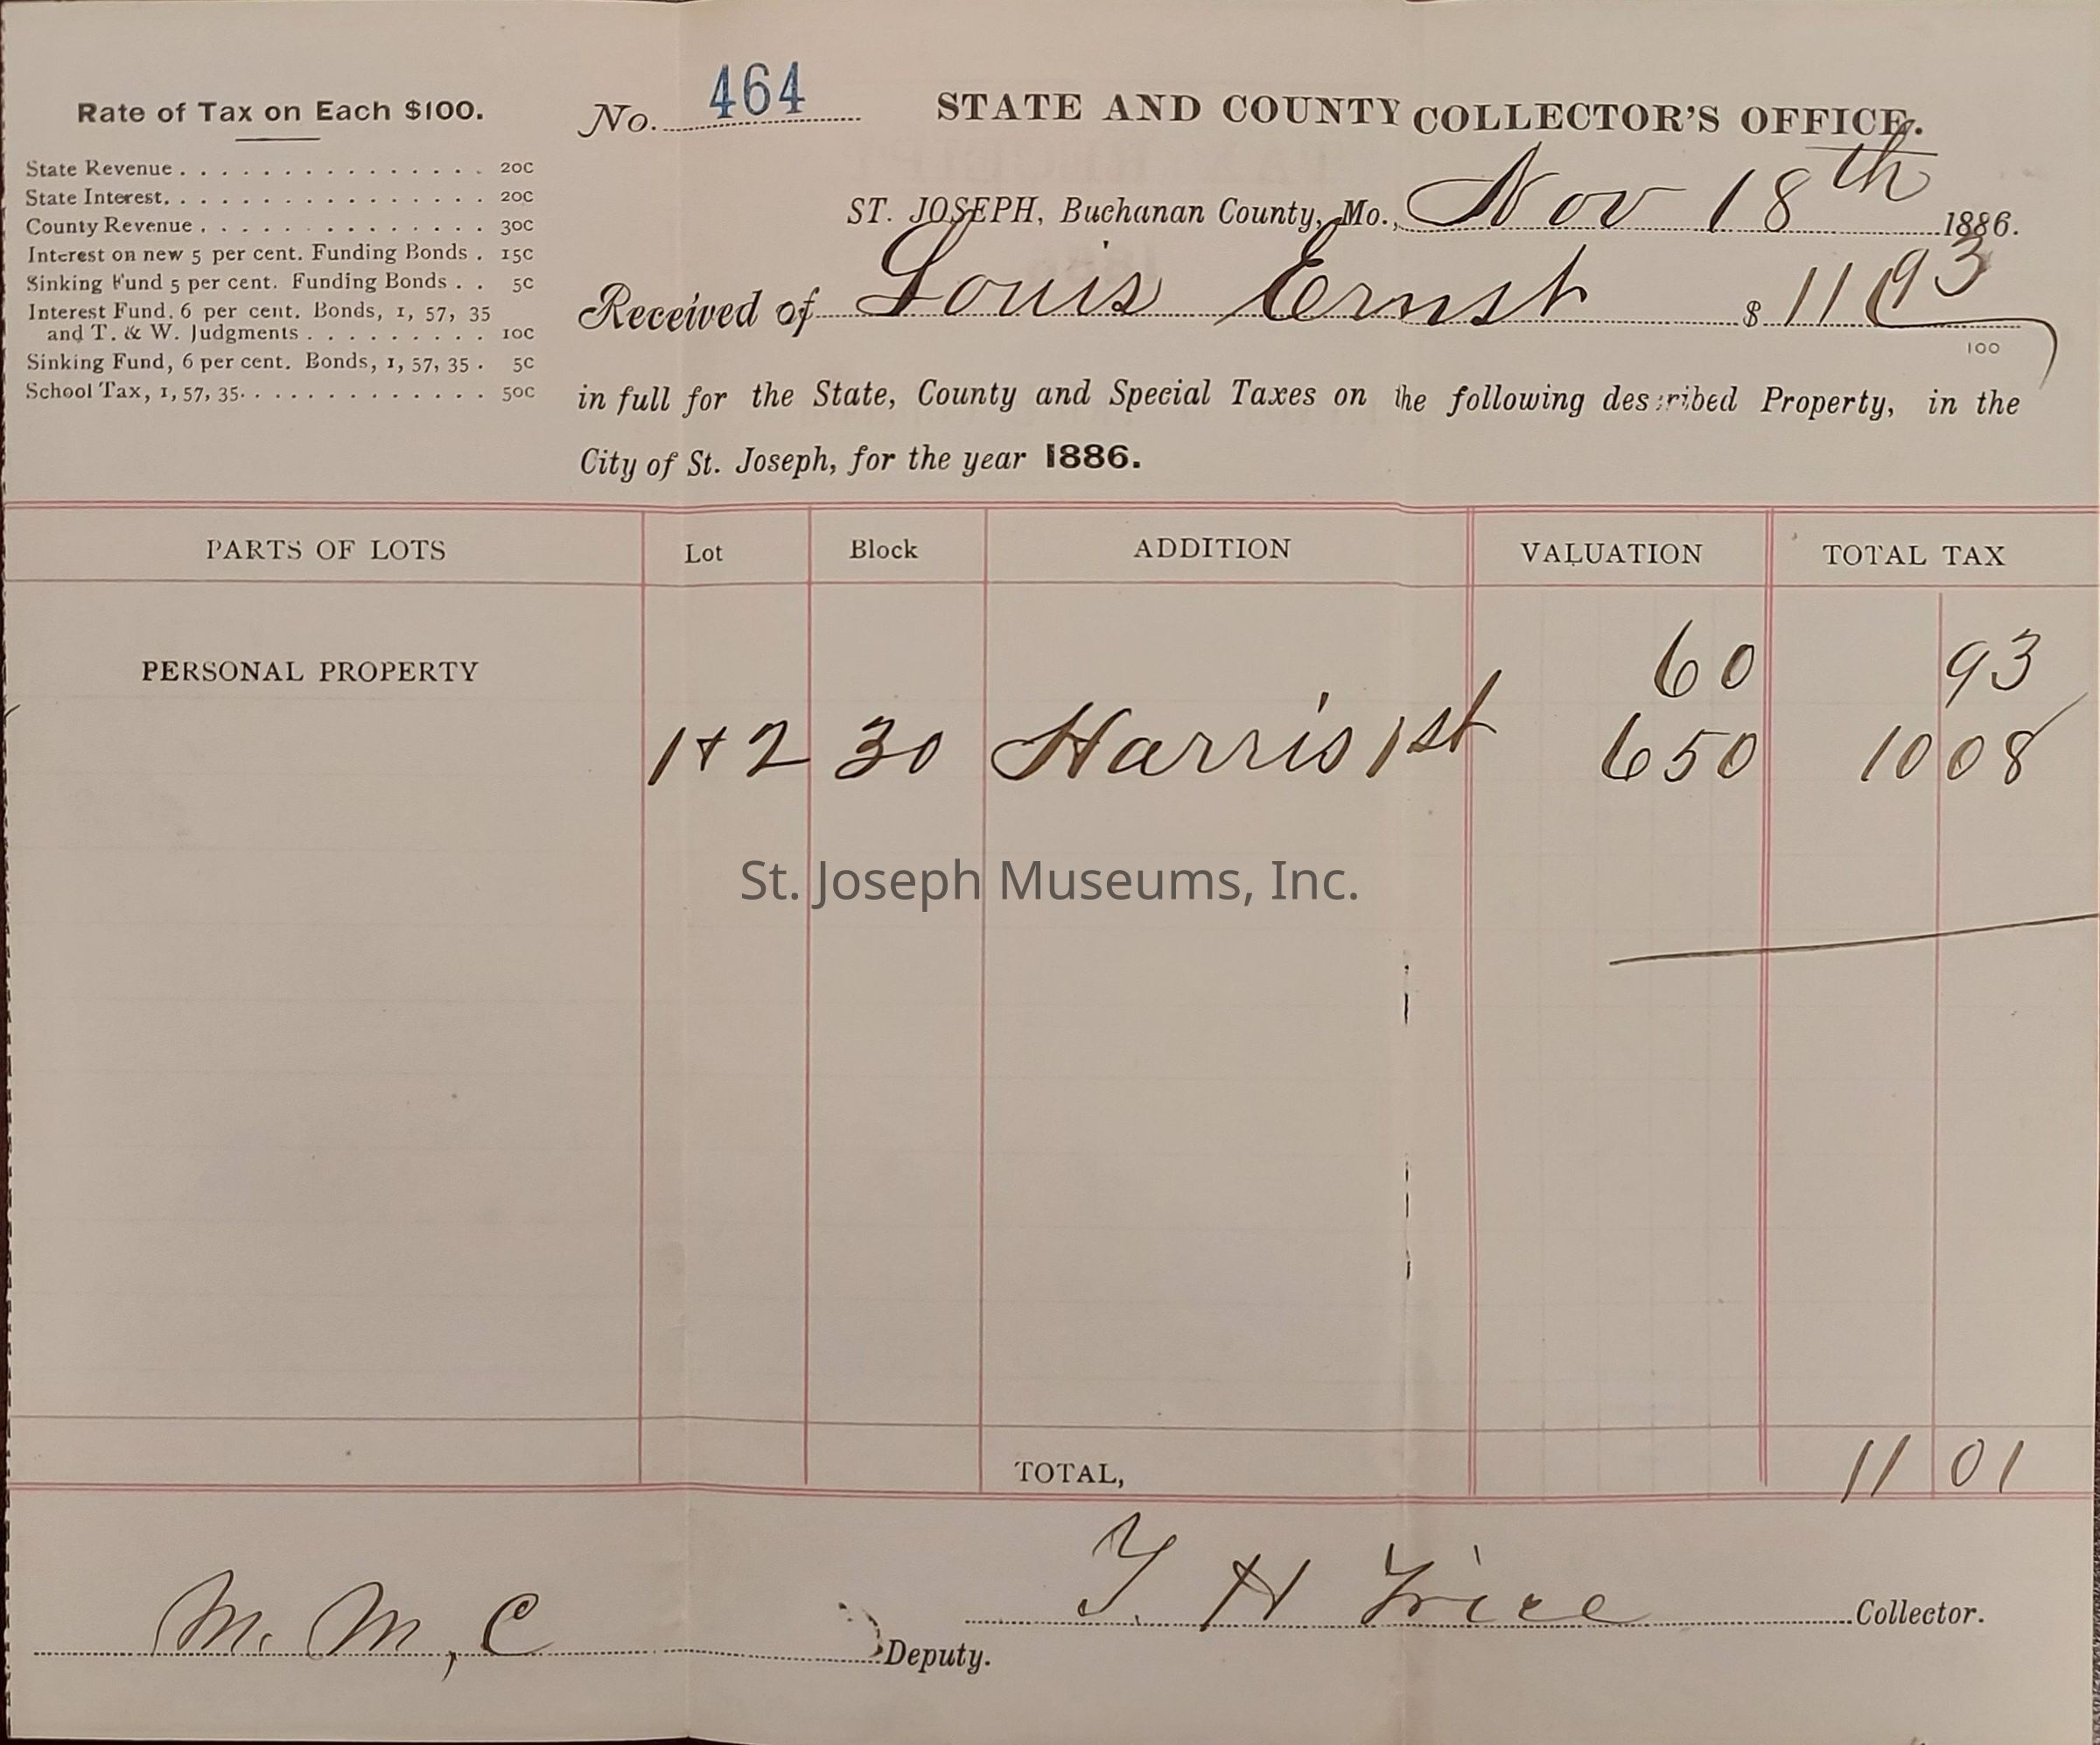 Rate of Tax on Each $100.
State Revenue . . . . . . . . . . . . . . . 20C
State Interest. . . . . . . . . . . . . . . . 20C
County Revenue . . . . . . . . . . . . . 30C
Interest on new 5 per cent. Funding Bonds . 15C
Sinking Fund 5 per cent. Funding Bonds . . 5C
Interest Fund. 6 per cent. Bonds, 1, 57, 35
and T. & W. Judgments . . . . . . . . . 10C
Sinking Fund, 6 per cent. Bonds, 1, 57, 35 . 5C
School Tax, 1, 57, 35. . . . . . . . . . . . . 50C
No. 464 STATE AND COUNTY COLLECTOR'S OFFICE.
ST. JOSEPH, Buchanan County, Mo., Nov 18th 1886.
Received of Louis Ernst $ 11 93
100
in full for the State, County and Special Taxes on the following described Property, in the
City of St. Joseph, for the year 1886.
PARTS OF LOTS Lot Block ADDITION VALUATION TOTAL TAX
PERSONAL PROPERTY 60 93
1+2 30 Harris 1st 650 10 08
St. Joseph Museums, Inc.
TOTAL, 11 01
M. M, C Deputy.
H Collector.